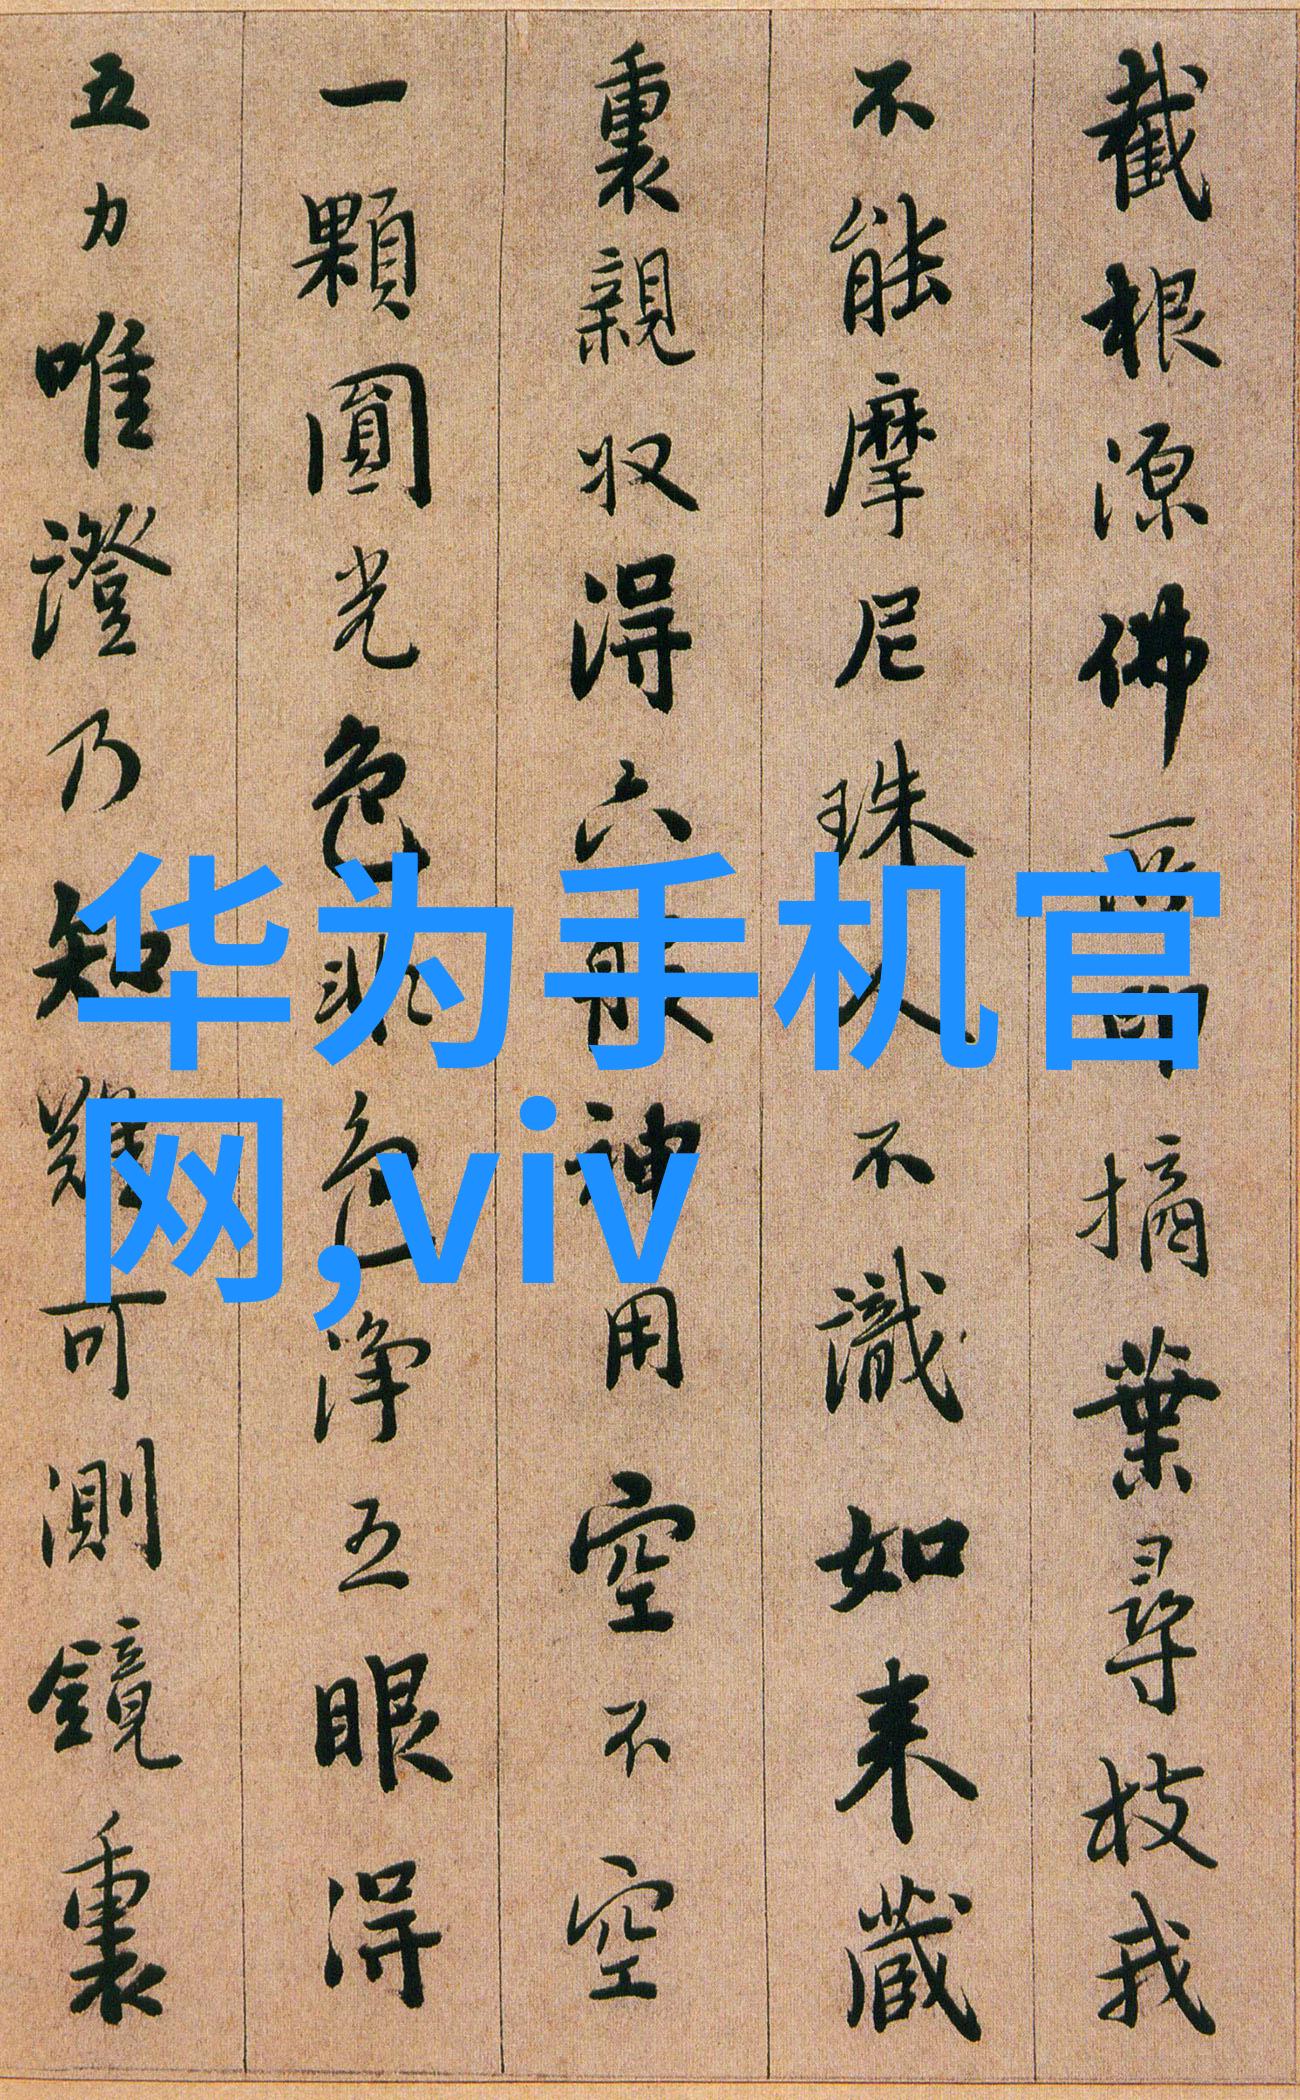 截根源佛所印摘葉尋枝我
不能摩尼珠人不識如来藏
裏親収得六般神用空不空
一顆圓光色非色淨五眼得
五力唯證乃知難可測鏡裏
华为手机官
网,viv